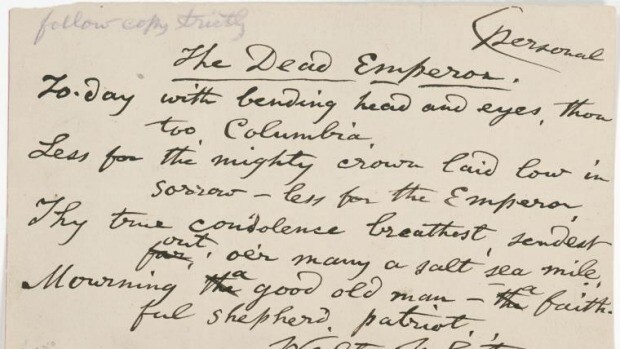 follow copy strictly
(personal
The Dead Emperor.
To-day with bending head and eyes, thou
too Columbia,
Less for the mighty crown laid low in
sorrow – less for the Emperor,
Thy true condolence breathest, sendest
out
far, o'er many a salt sea mile,
a a
Mourning the good old man – the faith-
ful shepherd, patriot.
Walt